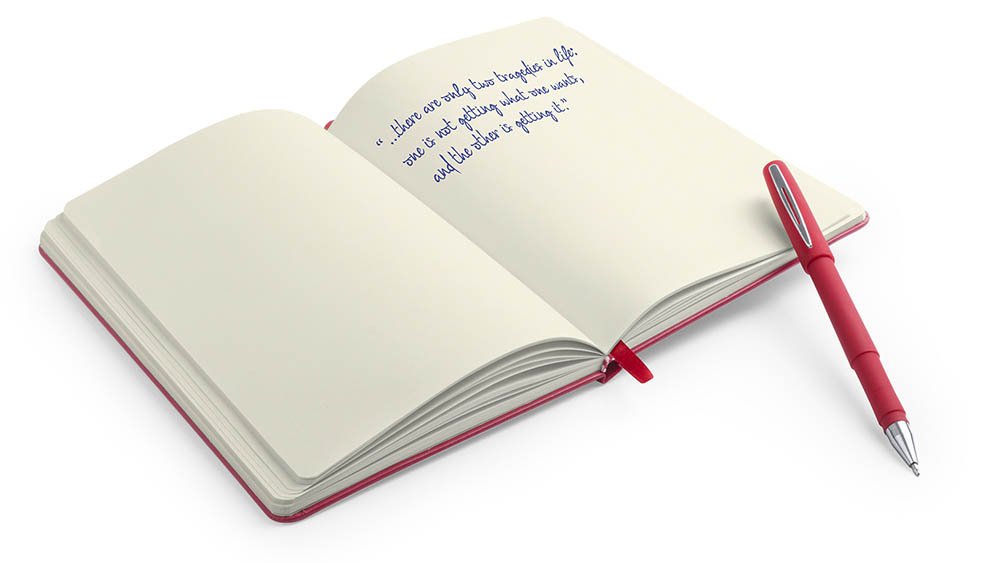 “ ..there are only two tragedies in life:
one is not getting what one wants,
and the other is getting it.”